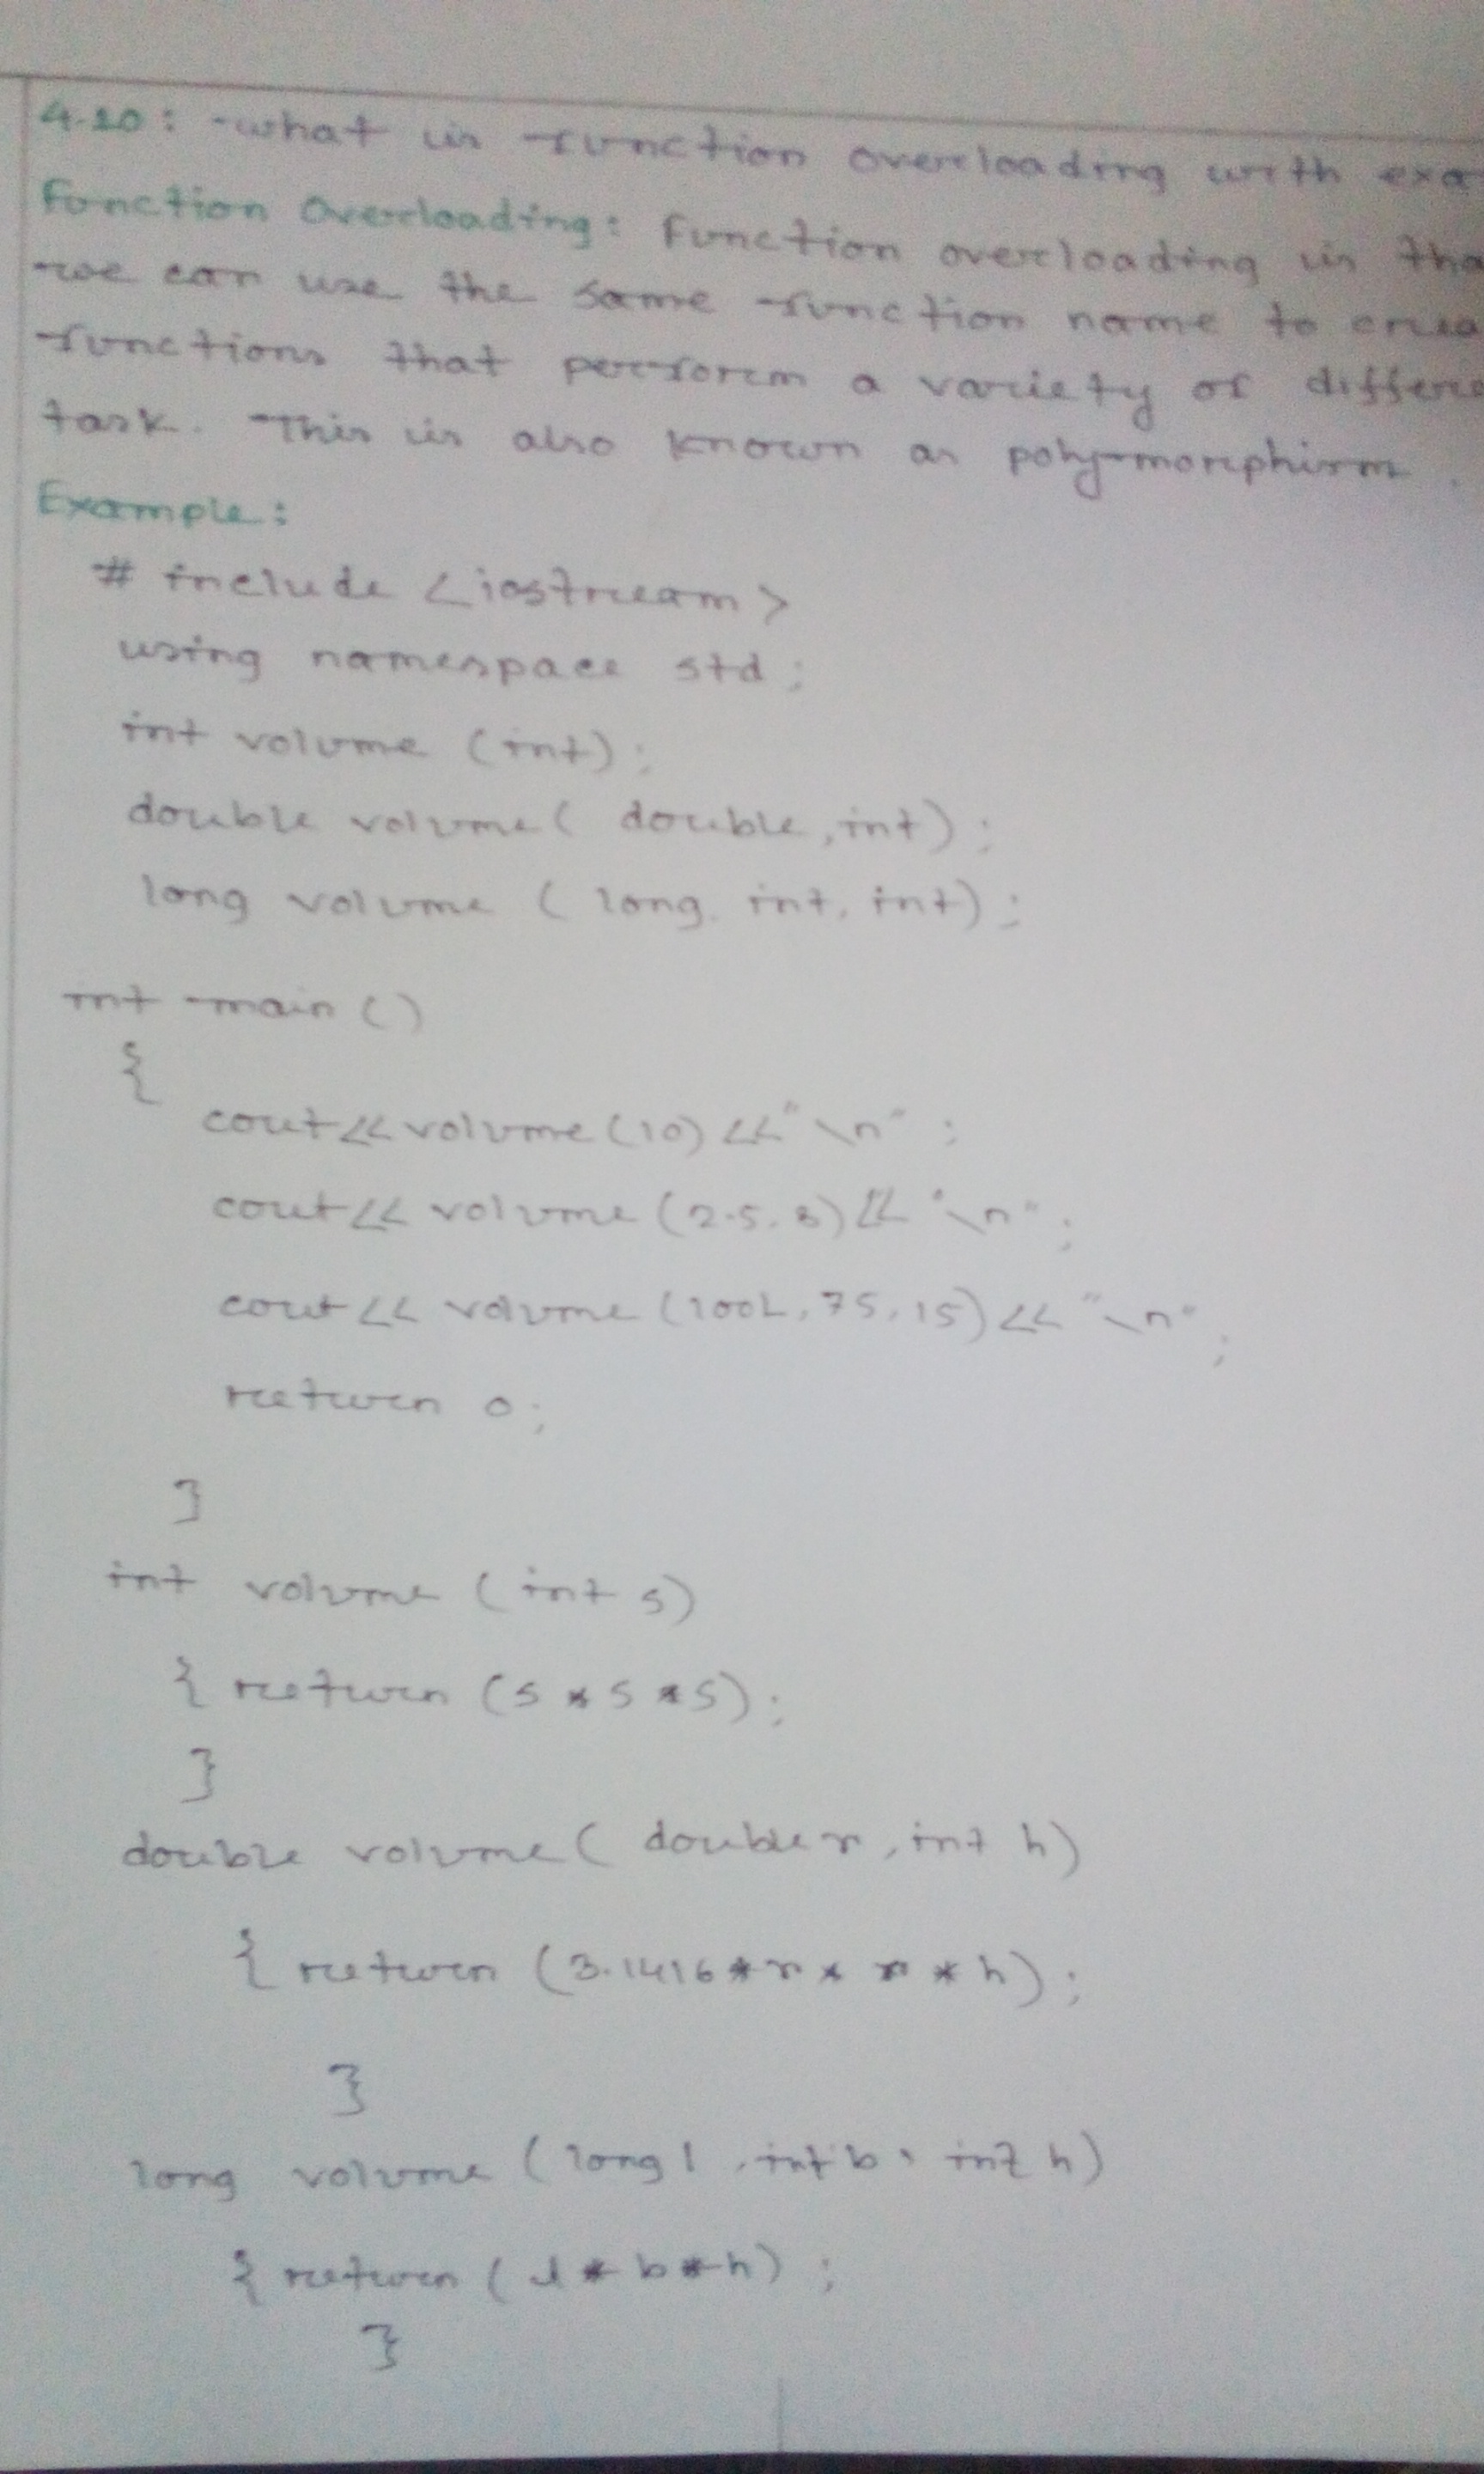 4.20: what is function overloading with exa
Function Overloading: Function overloading is tha
we can use the same function name to crea
functions that perform a variety of differe
task. This is also known as polymorphism.
Example:
# include <iostream>
using namespace std;
int volume (int);
double volume( double, int);
long volume ( long, int, int);
int main ()
{
cout<<volume(10)<<"\n";
cout<< volume (2.5, 8)<< "\n";
cout<< volume (100L, 75, 15)<< "\n";
return 0;
}
int volume (int s)
{ return (s * s * s);
}
double volume( double r, int h)
{ return (3.1416 * r * r * h);
}
long volume (long l, int b, int h)
{ return ( l * b * h) ;
}